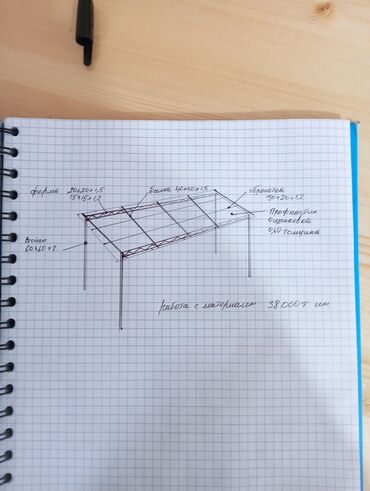 ферма 20×20×1,5
15×15×1,2
балка 40×40×1,5
обрешотка
20×20×1,2
Профнастил
оцинковка
0,40 толщина
стойки
60×60×2
работа с материалом 38000т сом